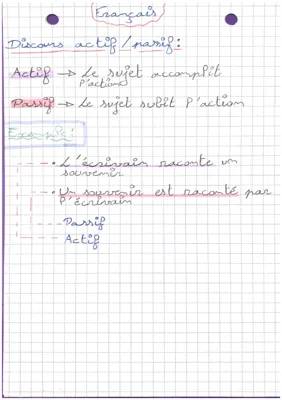 Français
Discours actif / passif :
Actif → Le sujet accomplit
l'action
Passif → Le sujet subit l'action
Exemple :
• L'écrivain raconte un
souvenir
• Un souvenir est raconté par
l'écrivain
Passif
Actif